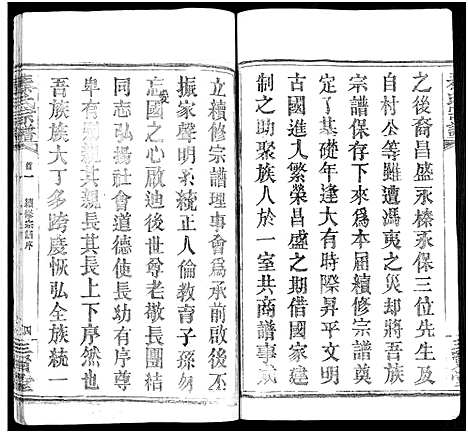 之後裔昌盛永榛永保三位先生及
自村公等雖遭馮夷之災却將吾族
宗譜保存下來爲本屆續修宗譜奠
定了基礎年逢大有時際昇平文明
古國進入繁榮昌盛之期借國家建
制之助聚族人於一室共商譜事成
立續修宗譜理事會爲承前啟後丕
振家聲明系統正人倫教育子孫勿
忘愛國之心啟迪後世尊老敬長團結
同志弘揚社會道德使長幼有序尊
卑有親其親長其長上下序然也
吾族族大丁多跨慶恢弘全族統一
宗譜
首一
續修宗譜序
四